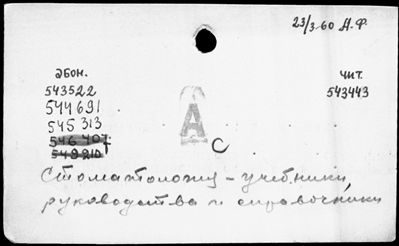 23/3-60 А.Ф.
абон.
543522
544691
545313
546407
549210
чит.
543443
А
С
Стоматология - учебники,
руководства и справочники